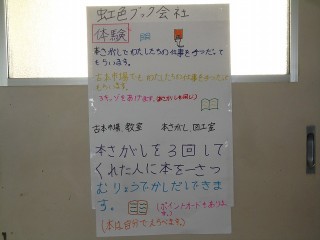 虹色ブック会社
体験
本さがしでわたしたちの仕事を手つだって
もらいます。
古本市場でもわたしたちの仕事を手つだって
もらいます。
スタンプをあげます。
古本市場、教室 本さがし、図工室
本さがしを3回して
くれた人に本を一さつ
むりょうでかしだしできま
す。
(ポイントカードもあります。)
(本は自分でえらべます。)